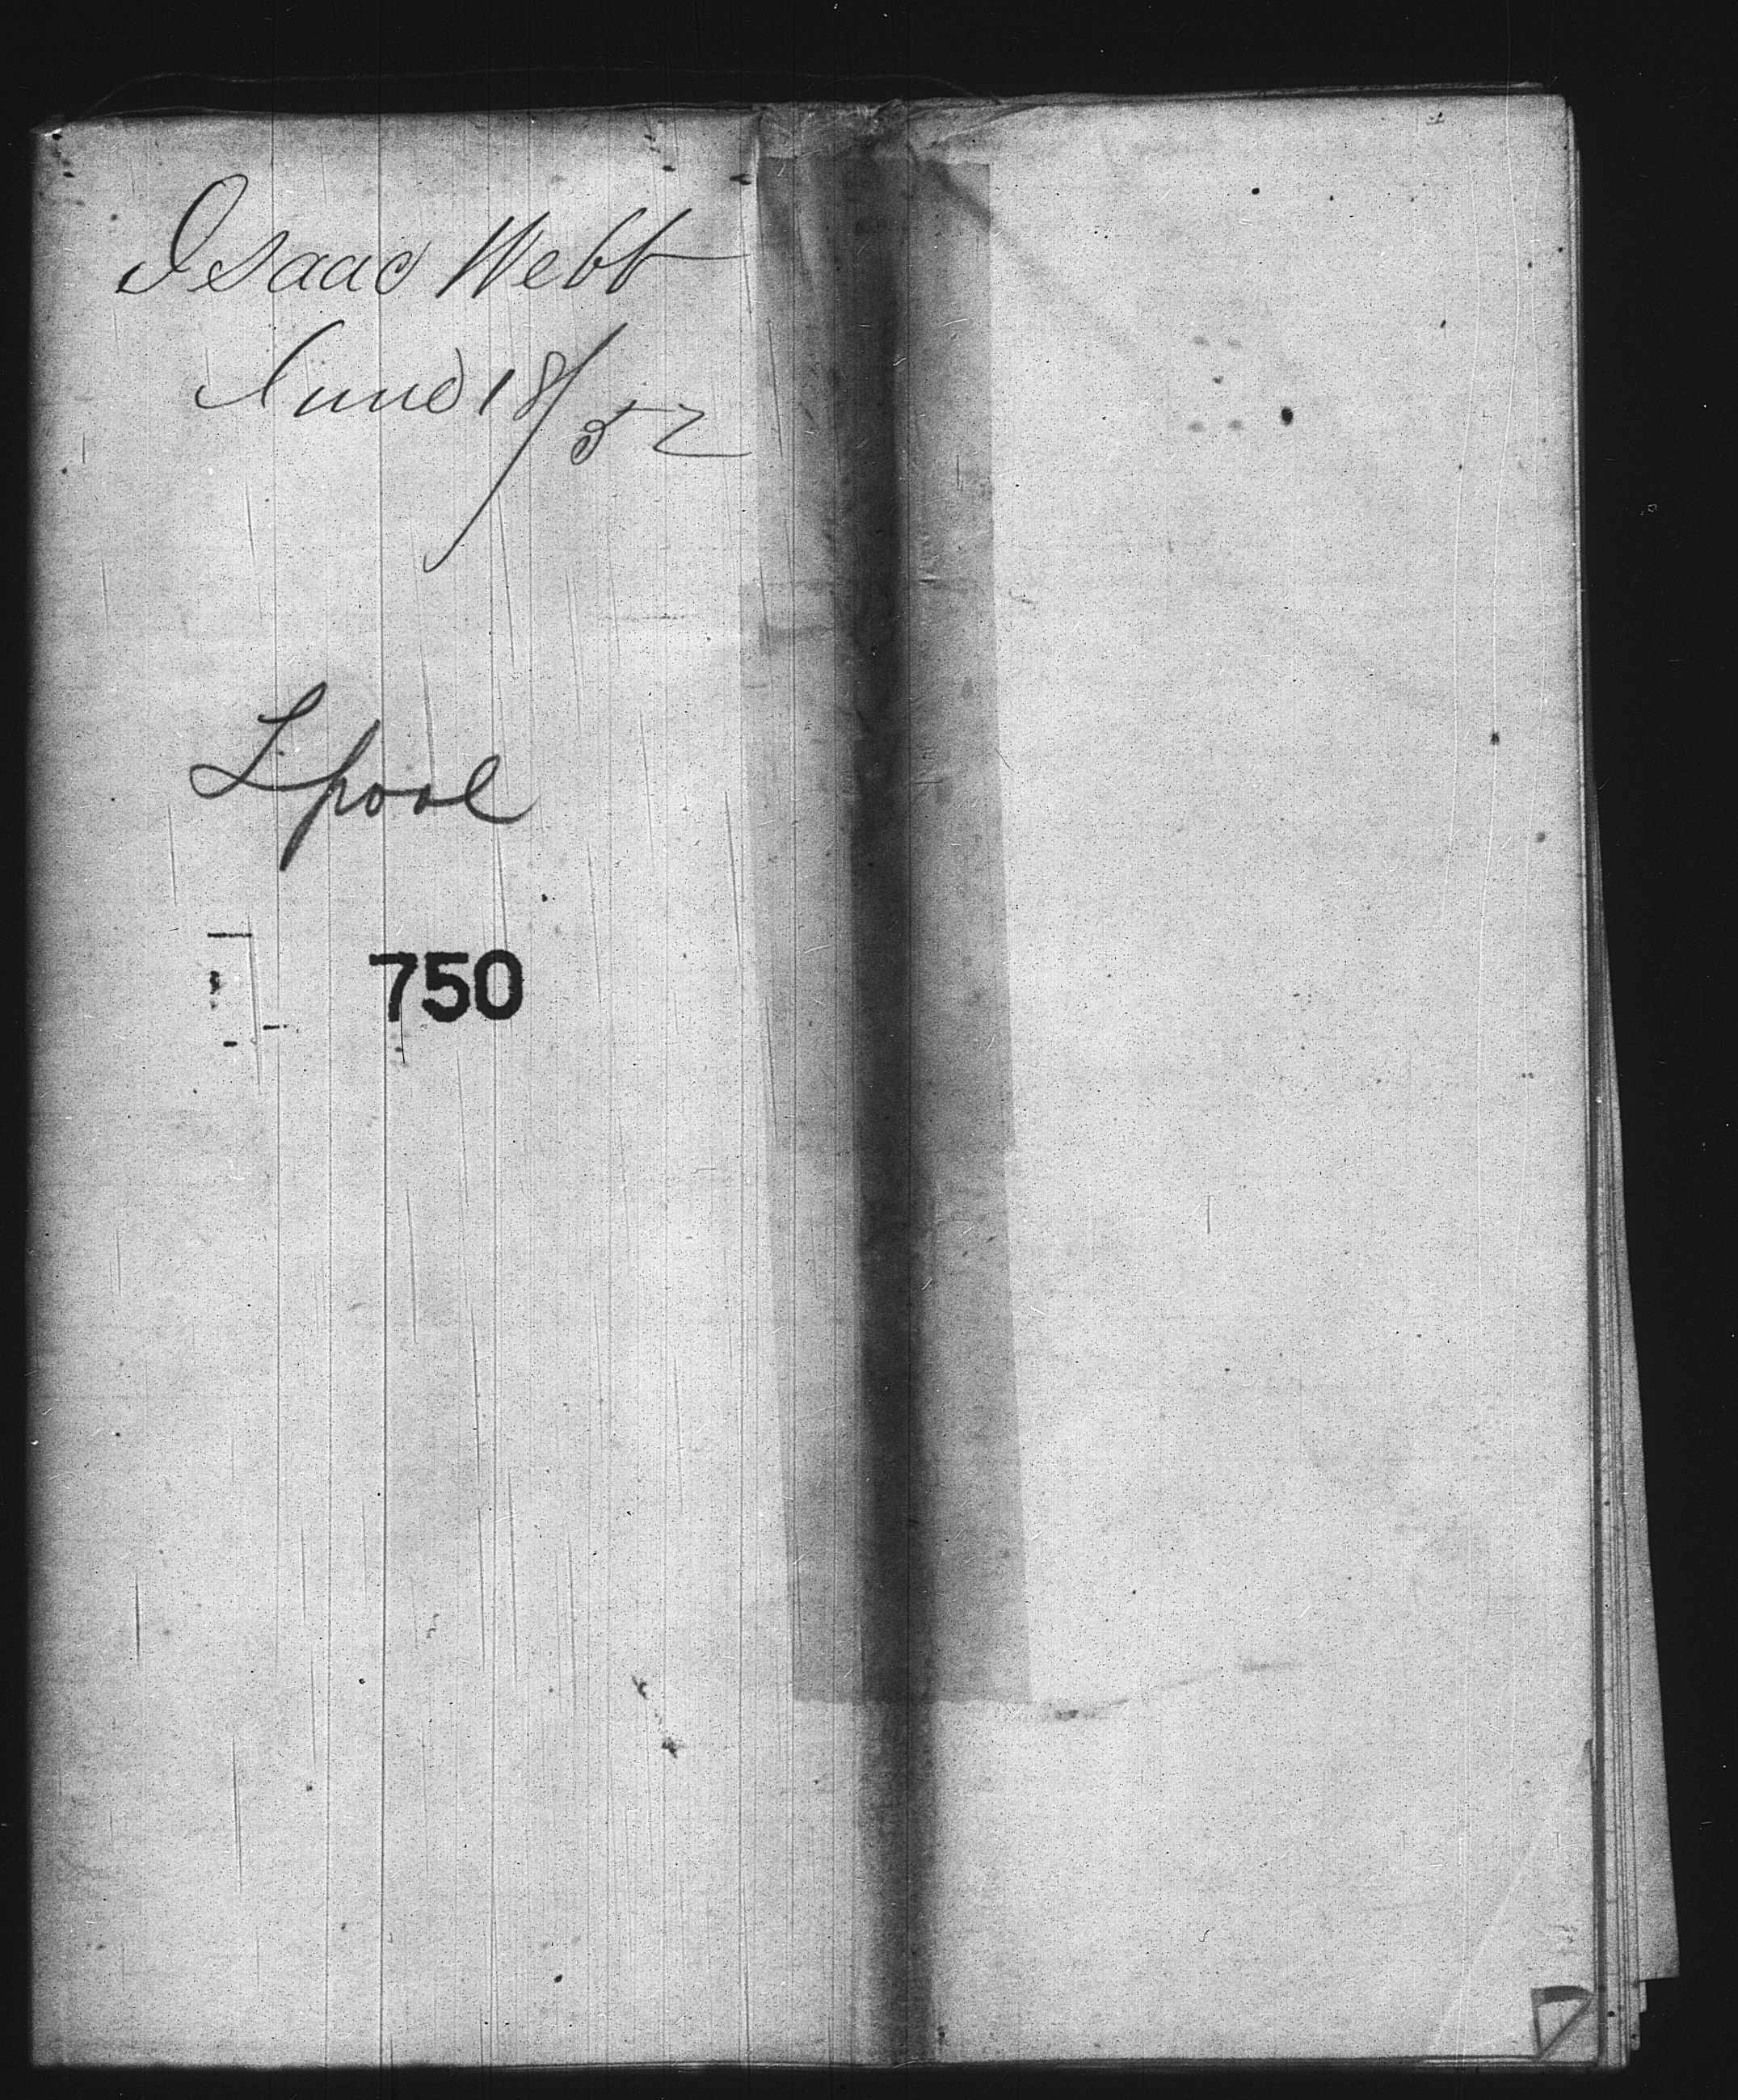 Isaac Webb
June 18/52
Lpool
750